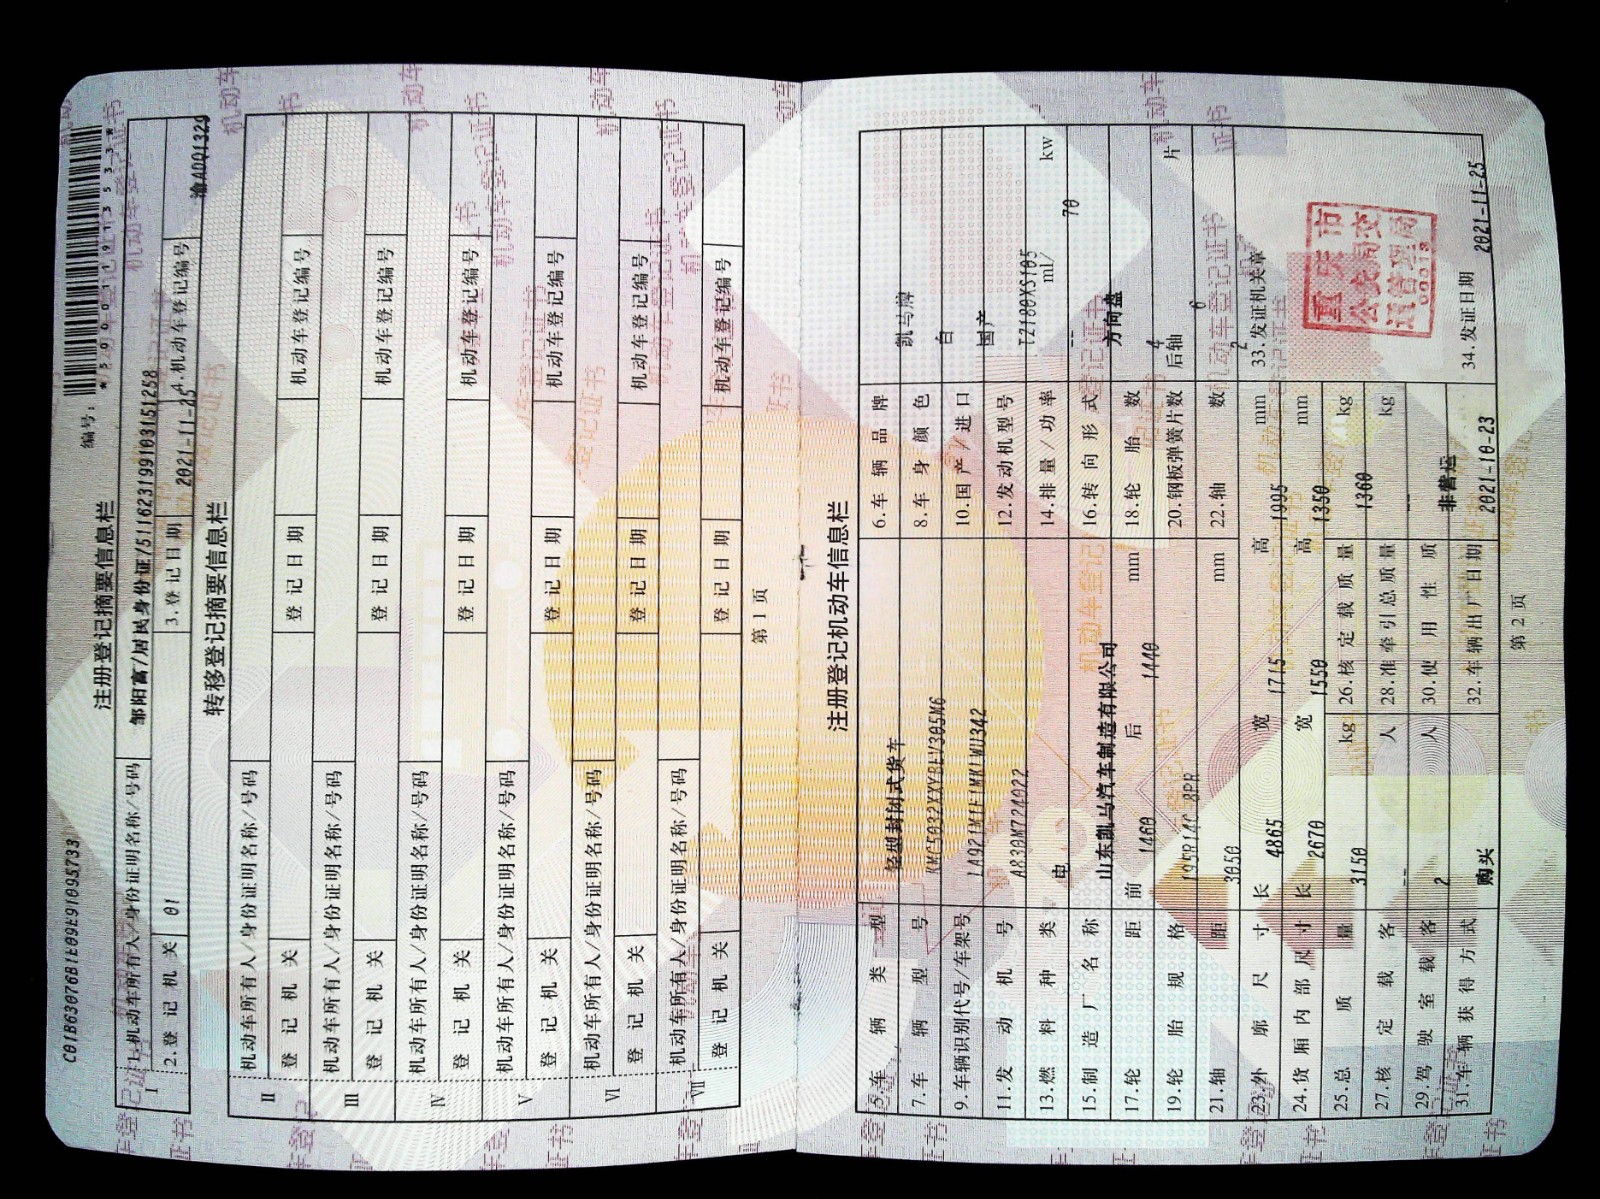 C01B63076B1E09E91095733
编号：
*590011913533*
注册登记摘要信息栏
Ⅰ
1.机动车所有人/身份证明名称/号码 邹阳富/居民身份证/511623199103151258
2.登记机关 01 3.登记日期 2021-11-25 4.机动车登记编号 渝AD01329
转移登记摘要信息栏
Ⅱ
机动车所有人/身份证明名称/号码
登记机关 登记日期 机动车登记编号
Ⅲ
机动车所有人/身份证明名称/号码
登记机关 登记日期 机动车登记编号
Ⅳ
机动车所有人/身份证明名称/号码
登记机关 登记日期 机动车登记编号
Ⅴ
机动车所有人/身份证明名称/号码
登记机关 登记日期 机动车登记编号
Ⅵ
机动车所有人/身份证明名称/号码
登记机关 登记日期 机动车登记编号
Ⅶ
机动车所有人/身份证明名称/号码
登记机关 登记日期 机动车登记编号
第1页
注册登记机动车信息栏
5.车辆类型 轻型封闭式货车 6.车辆品牌 凯马牌
7.车辆型号 8.车身颜色 白
9.车辆识别代号/车架号 10.国产/进口 国产
11.发动机号 A830M724022 12.发动机型号 TZ180XS105
13.燃料种类 电 14.排量/功率 -- ml/ 70 kw
15.制造厂名称 山东凯马汽车制造有限公司 16.转向形式 方向盘
17.轮距 前 1460 后 1440 mm 18.轮胎数 4
19.轮胎规格 195R14C 8PR 20.钢板弹簧片数 后轴 6 片
21.轴距 3050 mm 22.轴数 2
23.外廓尺寸 长 4865 宽 1715 高 1995 mm 33.发证机关章
24.货厢内部尺寸 长 2670 宽 1550 高 1350 mm
25.总质量 3150 kg 26.核定载质量 1360 kg
27.核定载客 -- 人 28.准牵引总质量 -- kg
29.驾驶室载客 2 人 30.使用性质 非营运
31.车辆获得方式 购买 32.车辆出厂日期 2021-10-23 34.发证日期 2021-11-25
重庆市
公安局交
通管理局
00013
第2页